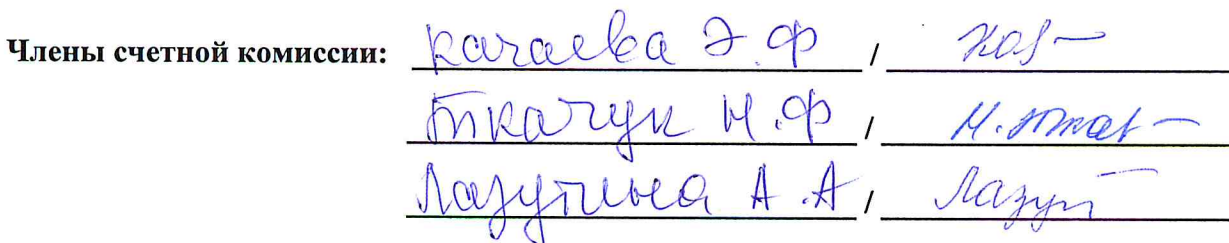 Члены счетной комиссии: Качаева Э.Ф /
Ткачук Н.Ф / Н.Ткач
Лазутина А.А / Лазут